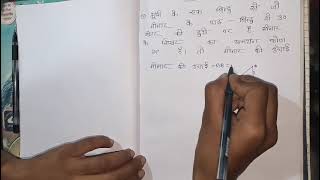 भूमि के एक बिन्दु से जो
मीनार के पाद - बिन्दु से 30
मीटर की दूरी पर है मीनार
के शिखर का उन्नयन कोण
है। तो मीनार की ऊँचाई
मीनार की ऊँचाई = AB =